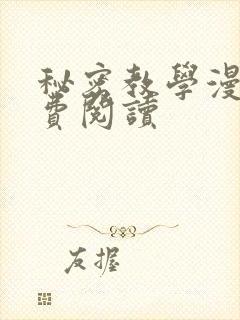 秘密教學漫
費閱讀
友握